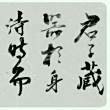 君子藏
器於身
待時而